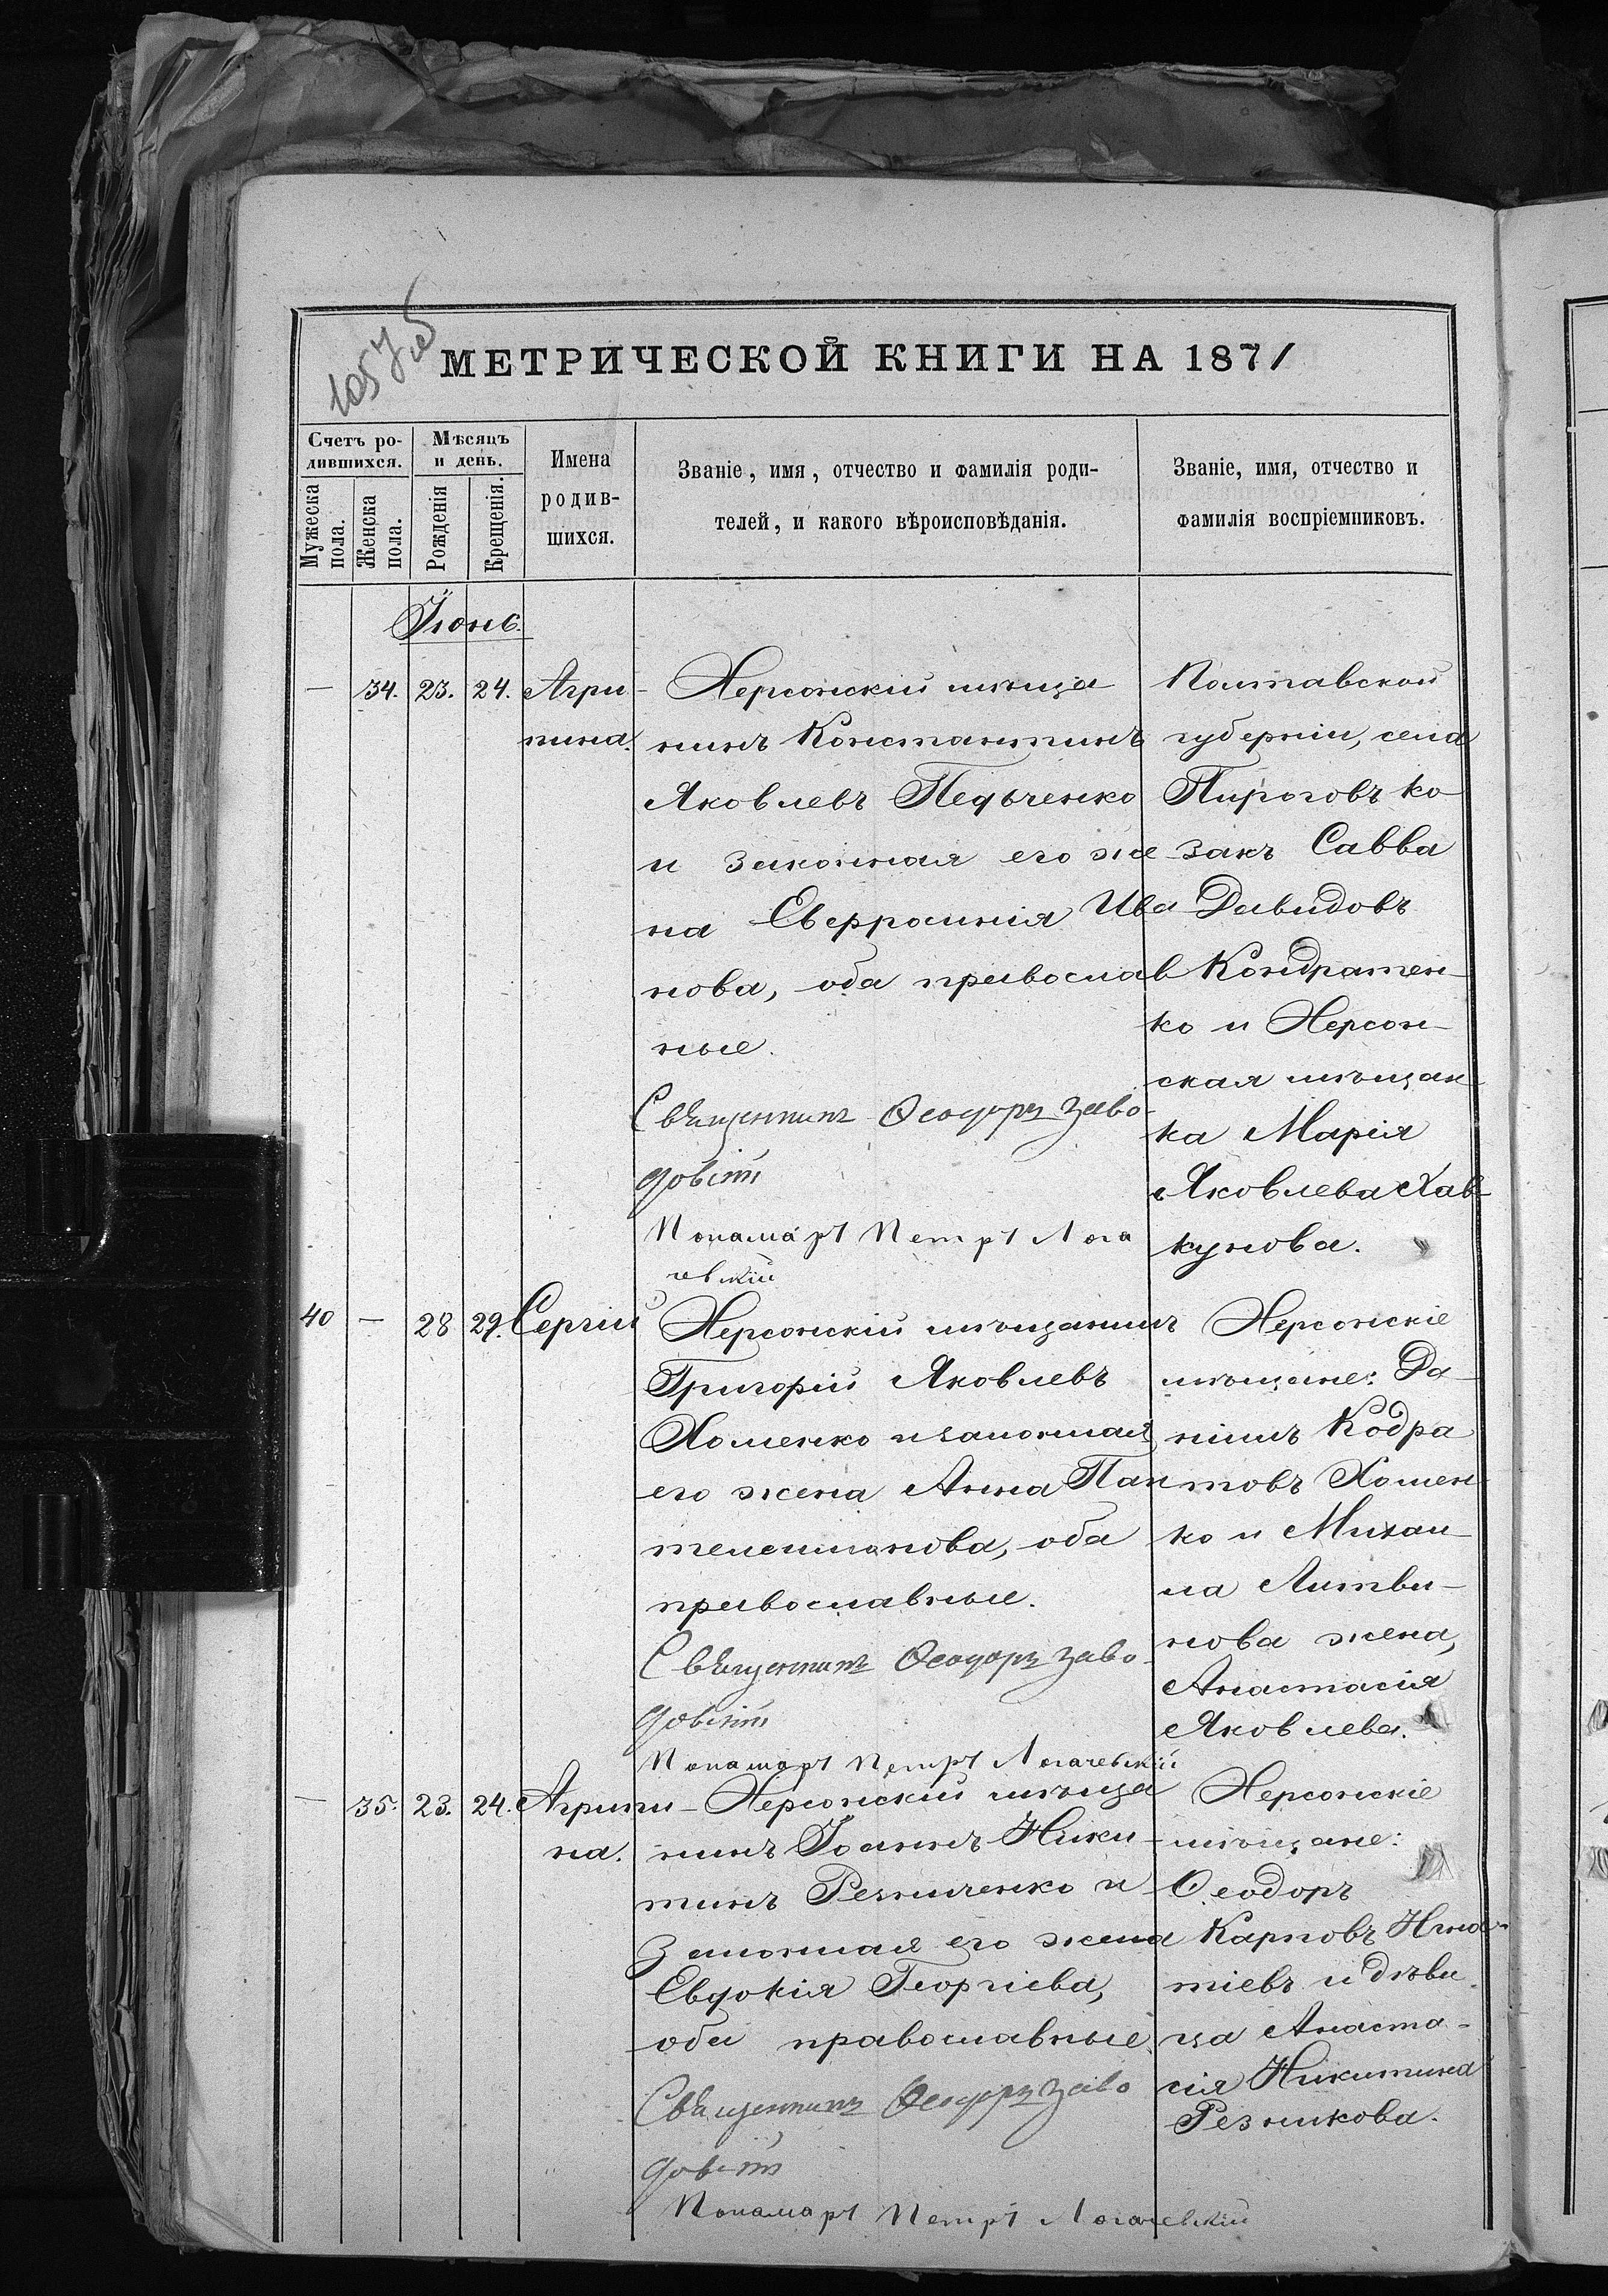 1057об
МЕТРИЧЕСКОЙ КНИГИ НА 1871
Счетъ ро-
дившихся.
Мужеска
пола.
Женска
пола.
Мѣсяцъ
и день.
Рожденія
Крещенія.
Имена
родив-
шихся.
Званіе, имя, отчество и фамилія роди-
телей, и какого вѣроисповѣданія.
Званіе, имя, отчество и
фамилія воспріемниковъ.
Іюнь.
— 34. 23. 24.
Агри-
пина.
Херсонскій мѣща
нинъ Константинъ
Яковлевъ Педыченко
и законная его же
на Евфросинія Ива
нова, оба православ
ные.
Священникъ Ѳеодоръ Заво-
довскій
Пономарь Петръ Лога
чевскій
Полтавской
губерніи, села
Пироговъ ко-
закъ Савва
Давидовъ
Кондратен-
ко и Херсон-
ская мѣщан-
ка Марія
Яковлева
кунова.
40 — 28 29.
Сергій
Херсонскій мѣщанинъ
Григорій Яковлевъ
Хоменко и законная
его жена Анна Пан
телеимонова, оба
православные.
Священникъ Ѳеодоръ Заво-
довскій
Пономарь Петръ Логачевскій
Херсонскіе
мѣщане: Да-
ніилъ Кодра
товъ Хомен-
ко и Михаи-
ла Литви-
нова жена,
Анастасія
Яковлева.
— 35. 23. 24.
Агрипи-
на.
Херсонскій мѣща
нинъ Іоаннъ Ники-
тинъ Резниченко и
законная его жена
Евдокія Георгіева,
оба православные.
Священникъ Ѳеодоръ Заво
довскій
Пономарь Петръ Логачевскій
Херсонскіе
мѣщане:
Ѳеодоръ
Карповъ Игна-
тіевъ и дѣви-
ца Анаста-
сія Никитина
Резникова.